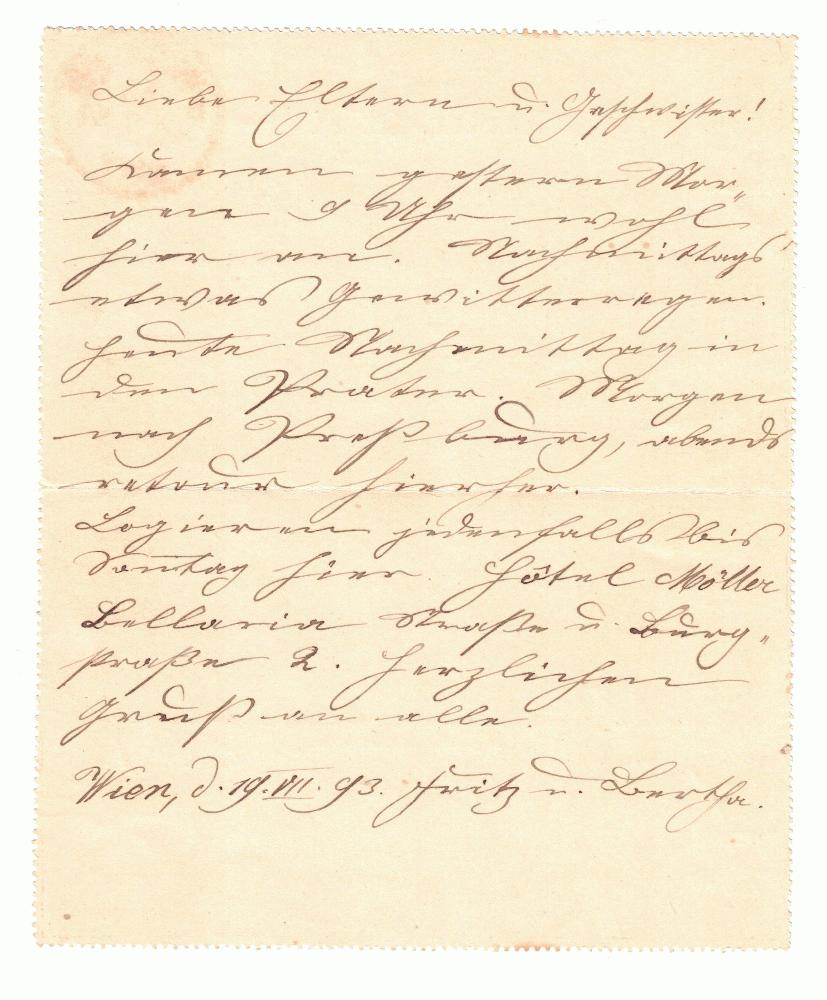 Liebe Eltern u. Geschwister!
Kamen gestern Mor„
gen 9 Uhr wohl
hier an. Nachmittags
etwas Gewitterregen.
Heute Nachmittag in
den Prater. Morgen
nach Preßburg, abends
retour hierher.
Logieren jedenfalls bis
Sonntag hier. Hôtel Möller
Bellaria Straße u. Burg„
straße 2. Herzlichen
Gruß an alle.
Wien, d. 19. VII. 93. Fritz u. Bertha.